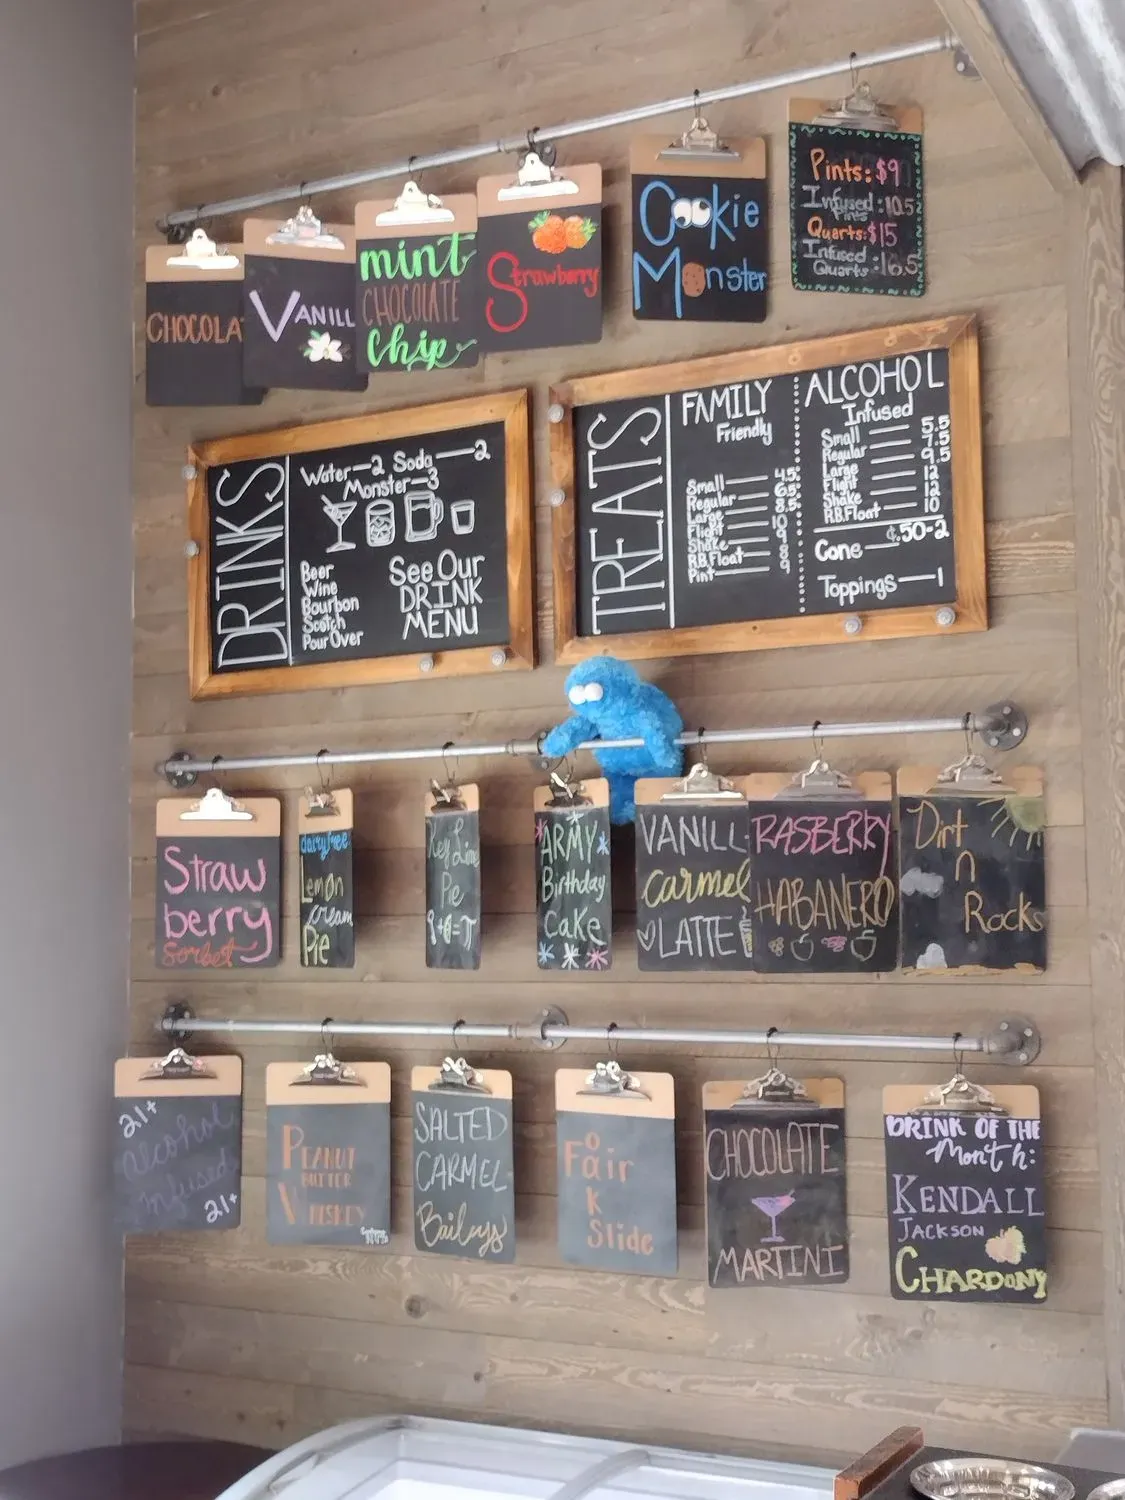 CHOCOLA
VANILL
mint
CHOCOLATE
Chip
Strawberry
Cookie
Monster
Pints: $9
Infused
Pints :10.5
Quarts: $15
Infused
Quarts :16.5
DRINKS
Water—2 Soda—2
Monster—3
Beer
Wine
Bourbon
Scotch
Pour Over
See Our
DRINK
MENU
TREATS
FAMILY
Friendly
Small — 4.5
Regular — 6.5
Large — 8.5
Flight — 10
Shake — 9
R.B. Float — 8
Pint — 9
ALCOHOL
Infused
Small — 5.5
Regular — 7.5
Large — 9.5
Flight — 12
Shake — 12
R.B. Float — 10
Cone — ¢.50-2
Toppings — 1
Straw
berry
Sorbet
dairy free
Lemon
cream
Pie
Key Lime
Pie
ARMY
Birthday
Cake
VANILL
carmel
LATTE
RASBERRY
HABANERO
Dirt
n
Rocks
21+
Alcohol
Infused
21+
PEANUT
BUTTER
WHISKEY
SALTED
CARMEL
Baileys
Fair
K
Slide
CHOCOLATE
MARTINI
DRINK OF THE
Month:
KENDALL
JACKSON
CHARDONY